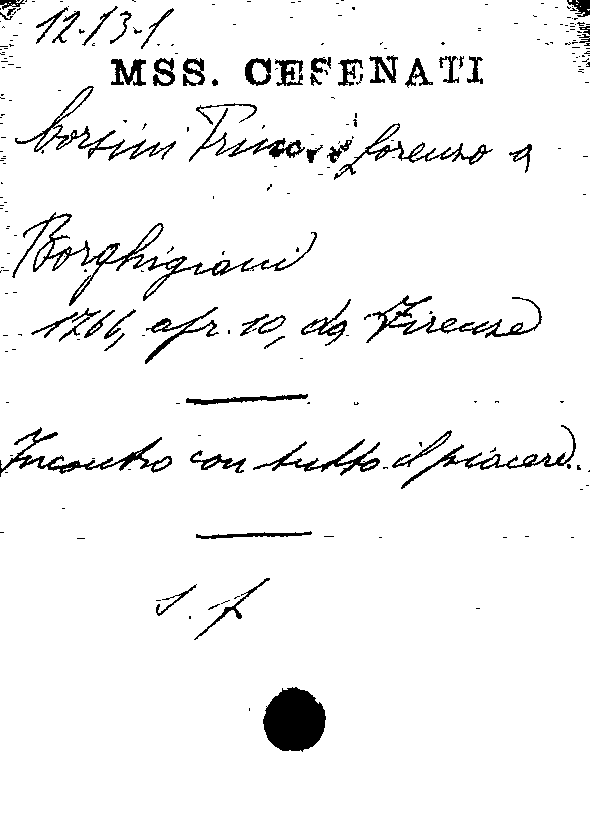 12-13-1
MSS. CESENATI
Corsini Princ. Lorenzo a
Borghigiani
1766, apr. 10, da Firenze
Incontro con tutto il piacere..
s. f